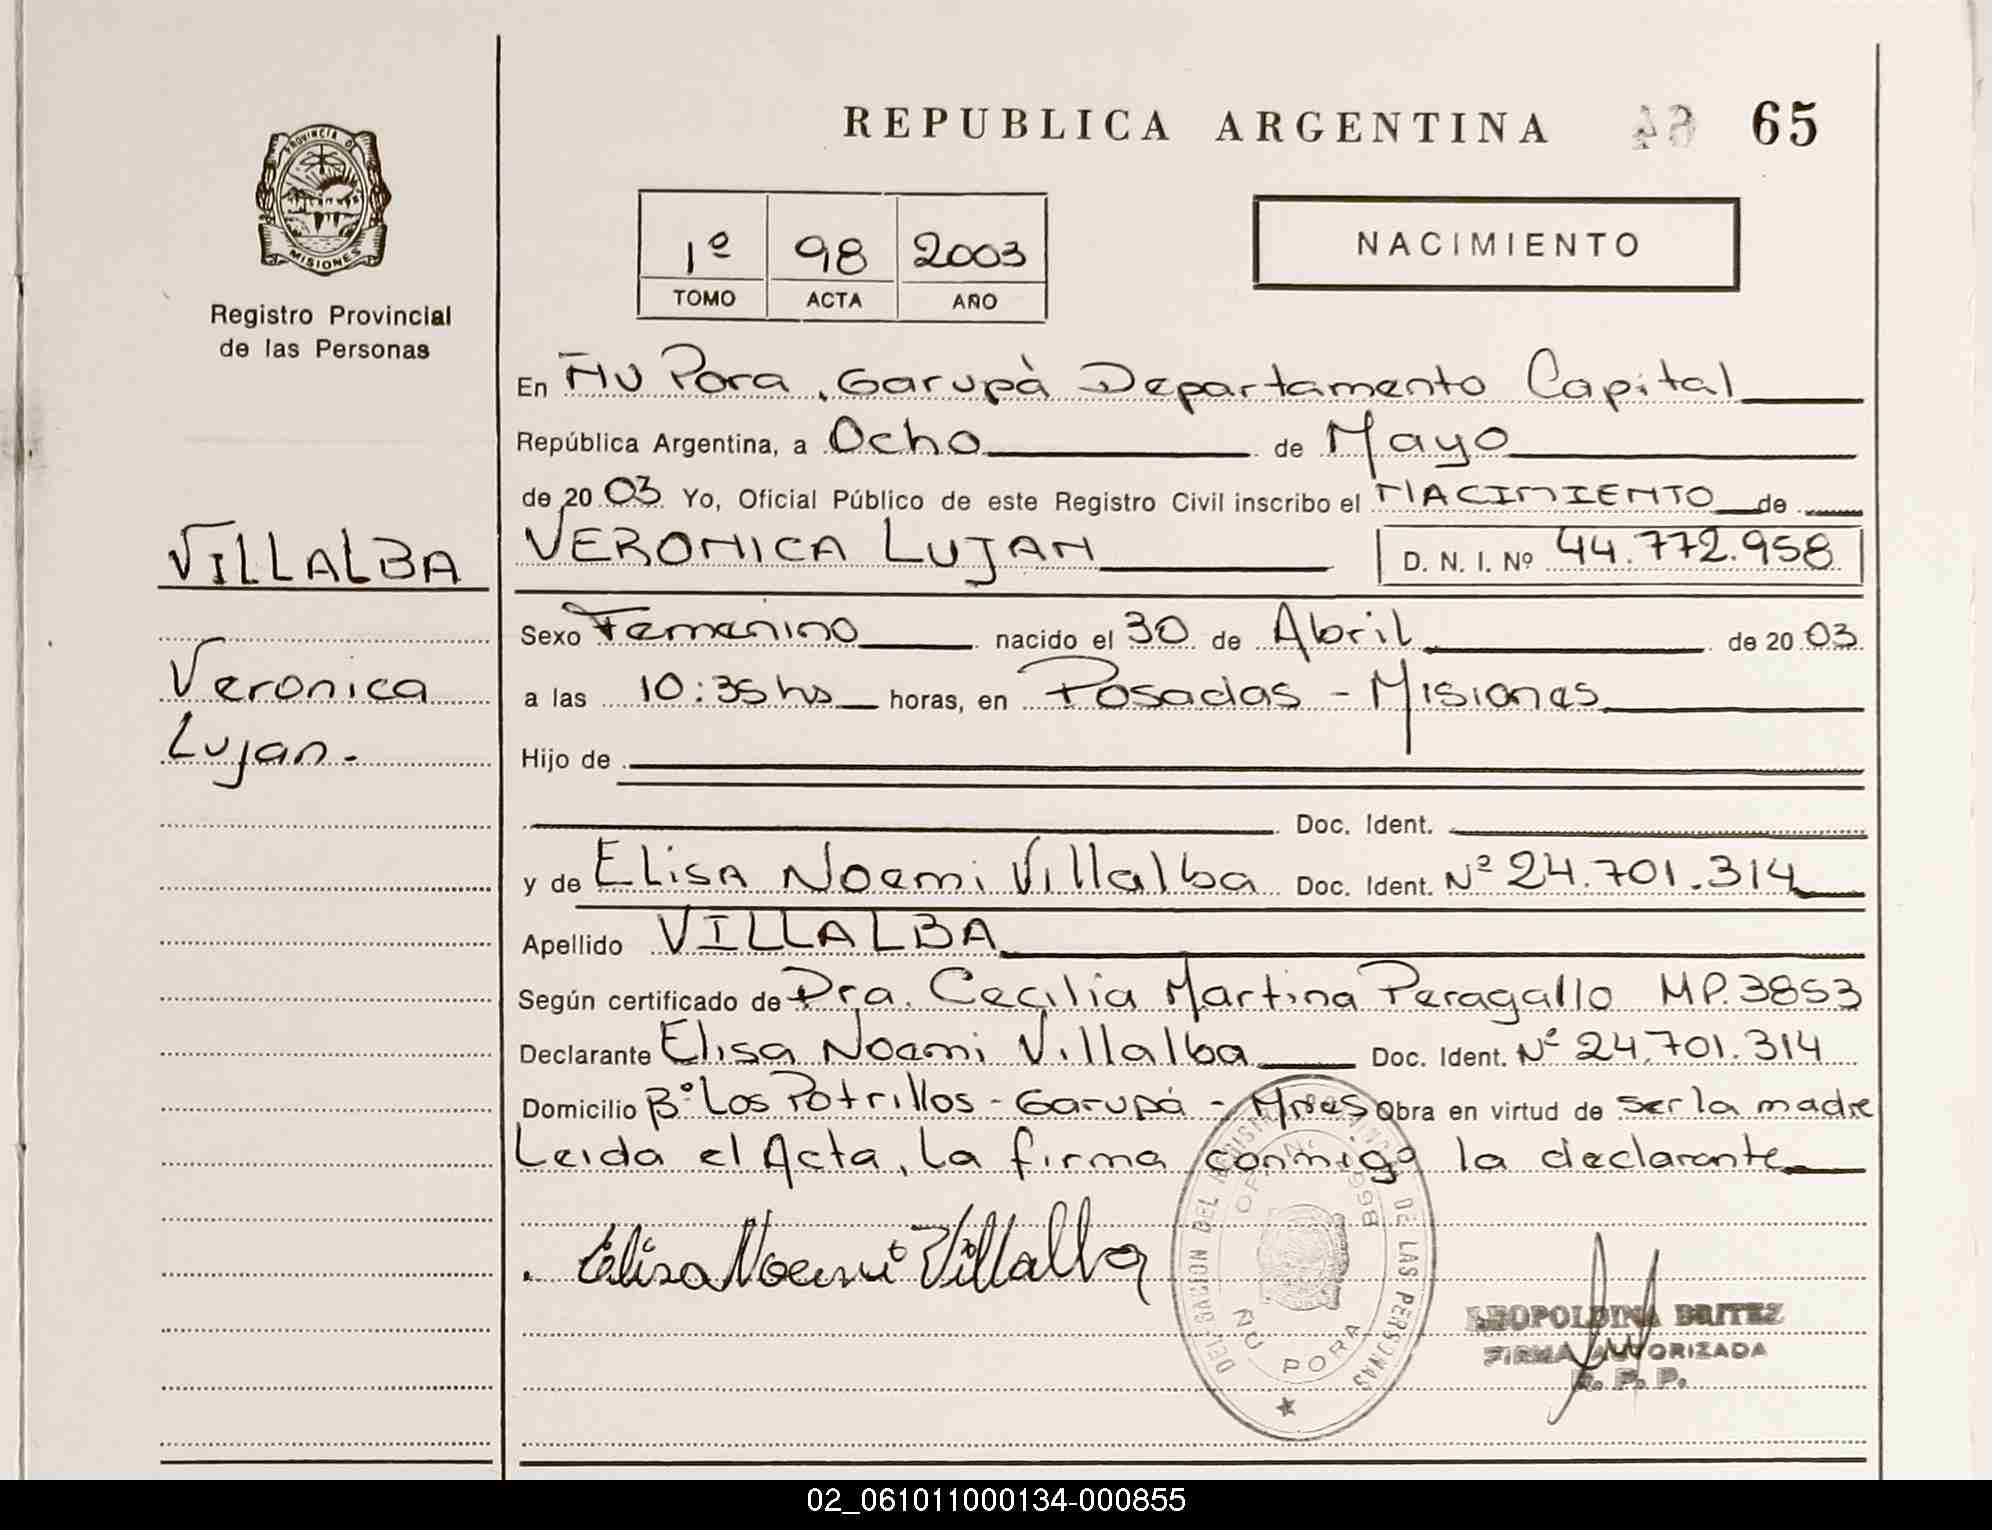 REPUBLICA ARGENTINA 65
PROVINCIA DE
MISIONES
Registro Provincial
de las Personas
1º 98 2003
TOMO ACTA AÑO
NACIMIENTO
En Ñu Pora, Garupà Departamento Capital
República Argentina, a Ocho de Mayo
de 2003 Yo, Oficial Público de este Registro Civil inscribo el NACIMIENTO de
VILLALBA
Veronica
Lujan.-
VERONICA LUJAN D. N. I. Nº 44.772.958
Sexo Femenino nacido el 30 de Abril de 2003
a las 10:35 hs horas, en Posadas - Misiones
Hijo de
Doc. Ident.
y de Elisa Noemi Villalba Doc. Ident. Nº 24.701.314
Apellido VILLALBA
Según certificado de Dra. Cecilia Martina Peragallo MP.3853
Declarante Elisa Noemi Villalba Doc. Ident. Nº 24.701.314
Domicilio Bº Los Potrillos - Garupá - Mnes Obra en virtud de ser la madre
Leida el Acta, la firma conmigo la declarante
Elisa Noemi Villalba
DELEGACION DEL REGISTRO PROVINCIAL DE LAS PERSONAS
ÑU PORA
LEOPOLDINA BRITEZ
FIRMA AUTORIZADA
R. P. P.
02_061011000134-000855